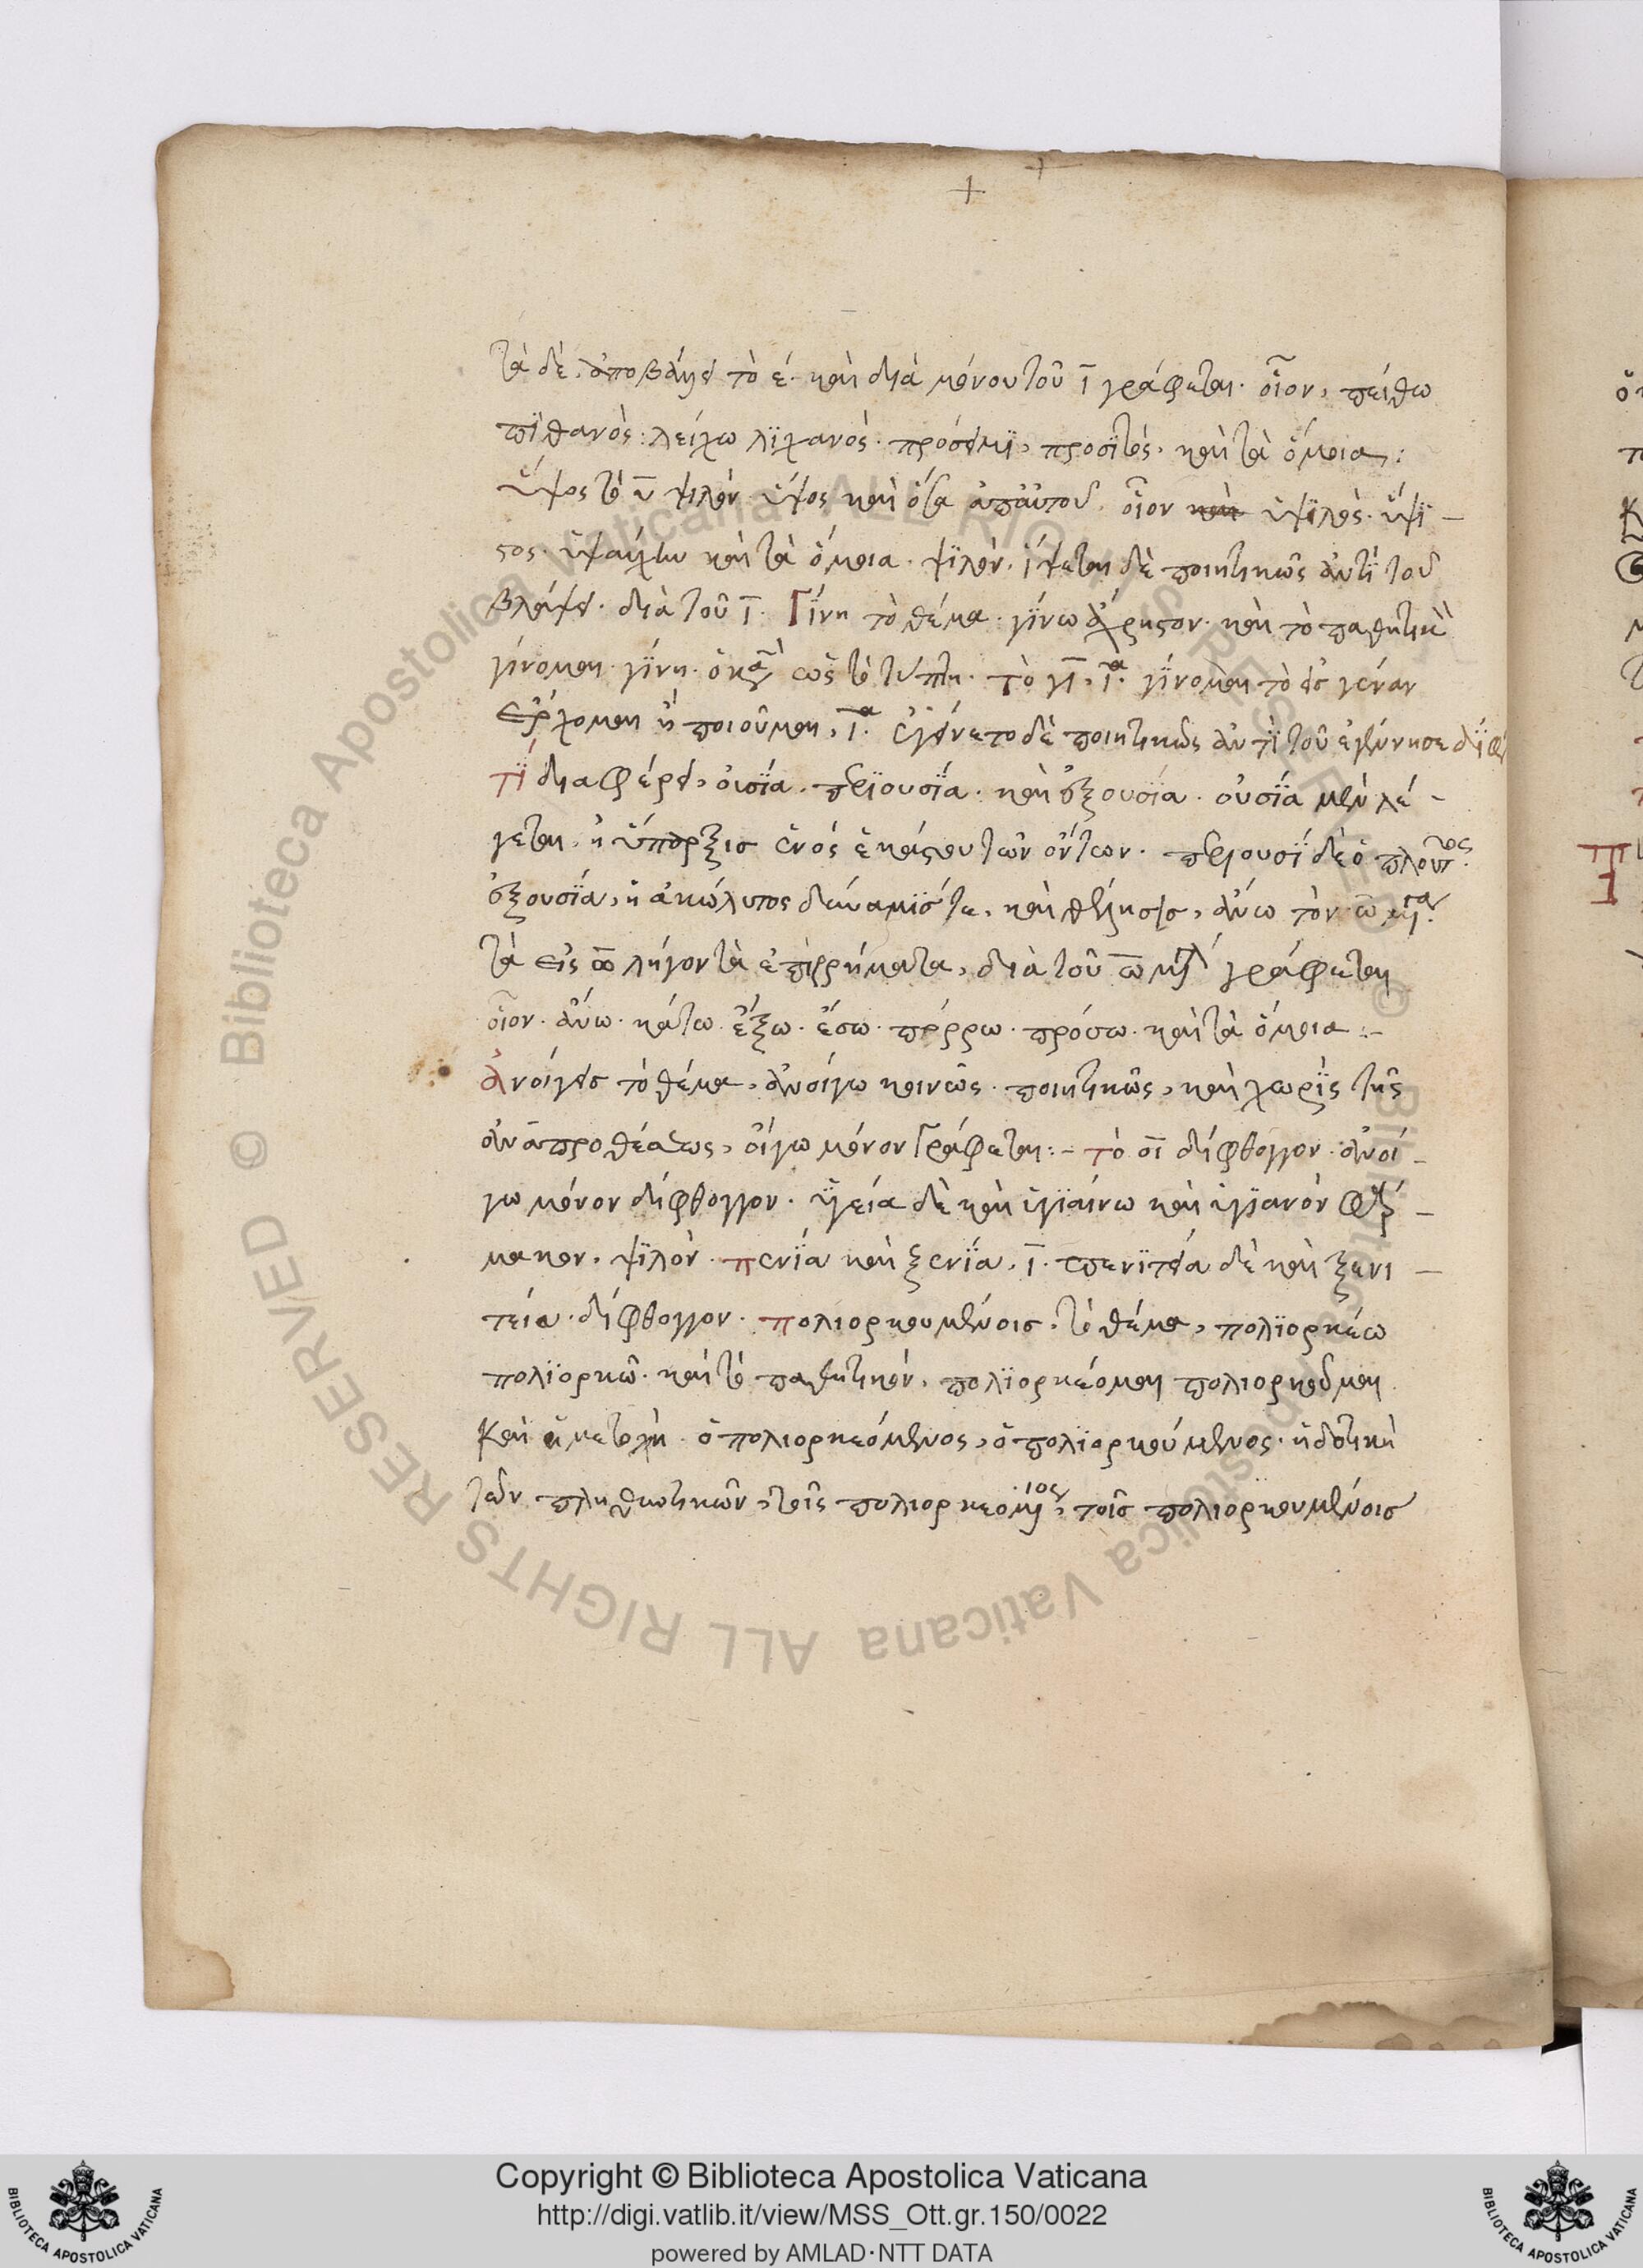 τὰ δὲ, ἀποβάλλει τὸ ε· καὶ διὰ μόνου τοῦ ῑ γράφεται· οἷον, πείθω
πϊθανὸς: λείχω λϊχανός· πρόσειμϊ, προσϊτὸς, καὶ τὰ ὅμοια:
ὕψος τὸ ῡ ψιλὸν ὕψος καὶ ὅσα ἀπ' αὐτοῦ. οἷον ὑψιλὸς· ὕψϊ–
στος· ὑψαύχην καὶ τὰ ὅμοια· ψϊλὸν· ἵψεται δὲ ποιητικῶς ἀντὶ τοῦ
βλάψει· διὰ τοῦ ῑ. Γίνη τὸ θέμα· γίνω ἄχρηστον· καὶ τὸ παθητικὸν
γίνομαι· γίνη· ὡς τὸ τύπτη· τὸ γῑ, ῑ· γίνομαι τὸ εἰς γέναν
ἔρχομαι ἢ ποιοῦμαι, ῑ. ἐγείνετο δὲ ποιητικῶς ἀντὶ τοῦ ἐγέννησε
τί διαφέρει, οὐσΐα, περϊουσΐα· καὶ ἐξουσΐα· οὐσΐα μὲν λέ–
γεται, ἡ ὕπαρξις ἑνὸς ἑκάστου τῶν ὄντων· περιουσΐ δὲ ὁ πλοῦτος.
ἐξουσΐα, ἡ ἀκώλυτος δύναμίς τε, καὶ θέλησις, ἄνω τὸν ω̄ μέγα.
τὰ εἰς ω̄ λήγοντα ἐπιρρήματα, διὰ τοῦ ω̄ μεγάλου γράφεται
οἷον· ἄνω· κάτω· ἔξω· ἔσω· πόρρω· πρόσω· καὶ τὰ ὅμοια:–
ἀνοίγεις τὸ θέμα, ἀνοίγω κοινῶς· ποιητικῶς, καὶ χωρὶς τῆς
ἀνὰ προθέσεως, οἴγω μόνον γράφεται:– τὸ οῑ δίφθογγον· ἀνοί–
γω μόνον δίφθογγον· ὑγεία δὲ καὶ ὑγϊαίνω καὶ ὑγϊανὸν φάρ–
μακον, ψϊλὸν· πενΐα καὶ ξενΐα, ῑ· πενϊτεία δὲ καὶ ξενι–
τεία· δίφθογγον· πολιορκουμένοις, τὸ θέμα, πολϊορκέω
πολϊορκῶ· καὶ τὸ παθητικὸν, πολϊορκέομαι πολιορκοῦμαι
Καὶ ἡ μετοχὴ· ὁ πολιορκεόμενος, ὁ πολϊορκούμενος· ἡ δοτικὴ
τῶν πληθυντικῶν, τοῖς πολιορκεομένοις, τοῖς πολιορκουμένοις
Copyright © Biblioteca Apostolica Vaticana
http://digi.vatlib.it/view/MSS_Ott.gr.150/0022
powered by AMLAD·NTT DATA